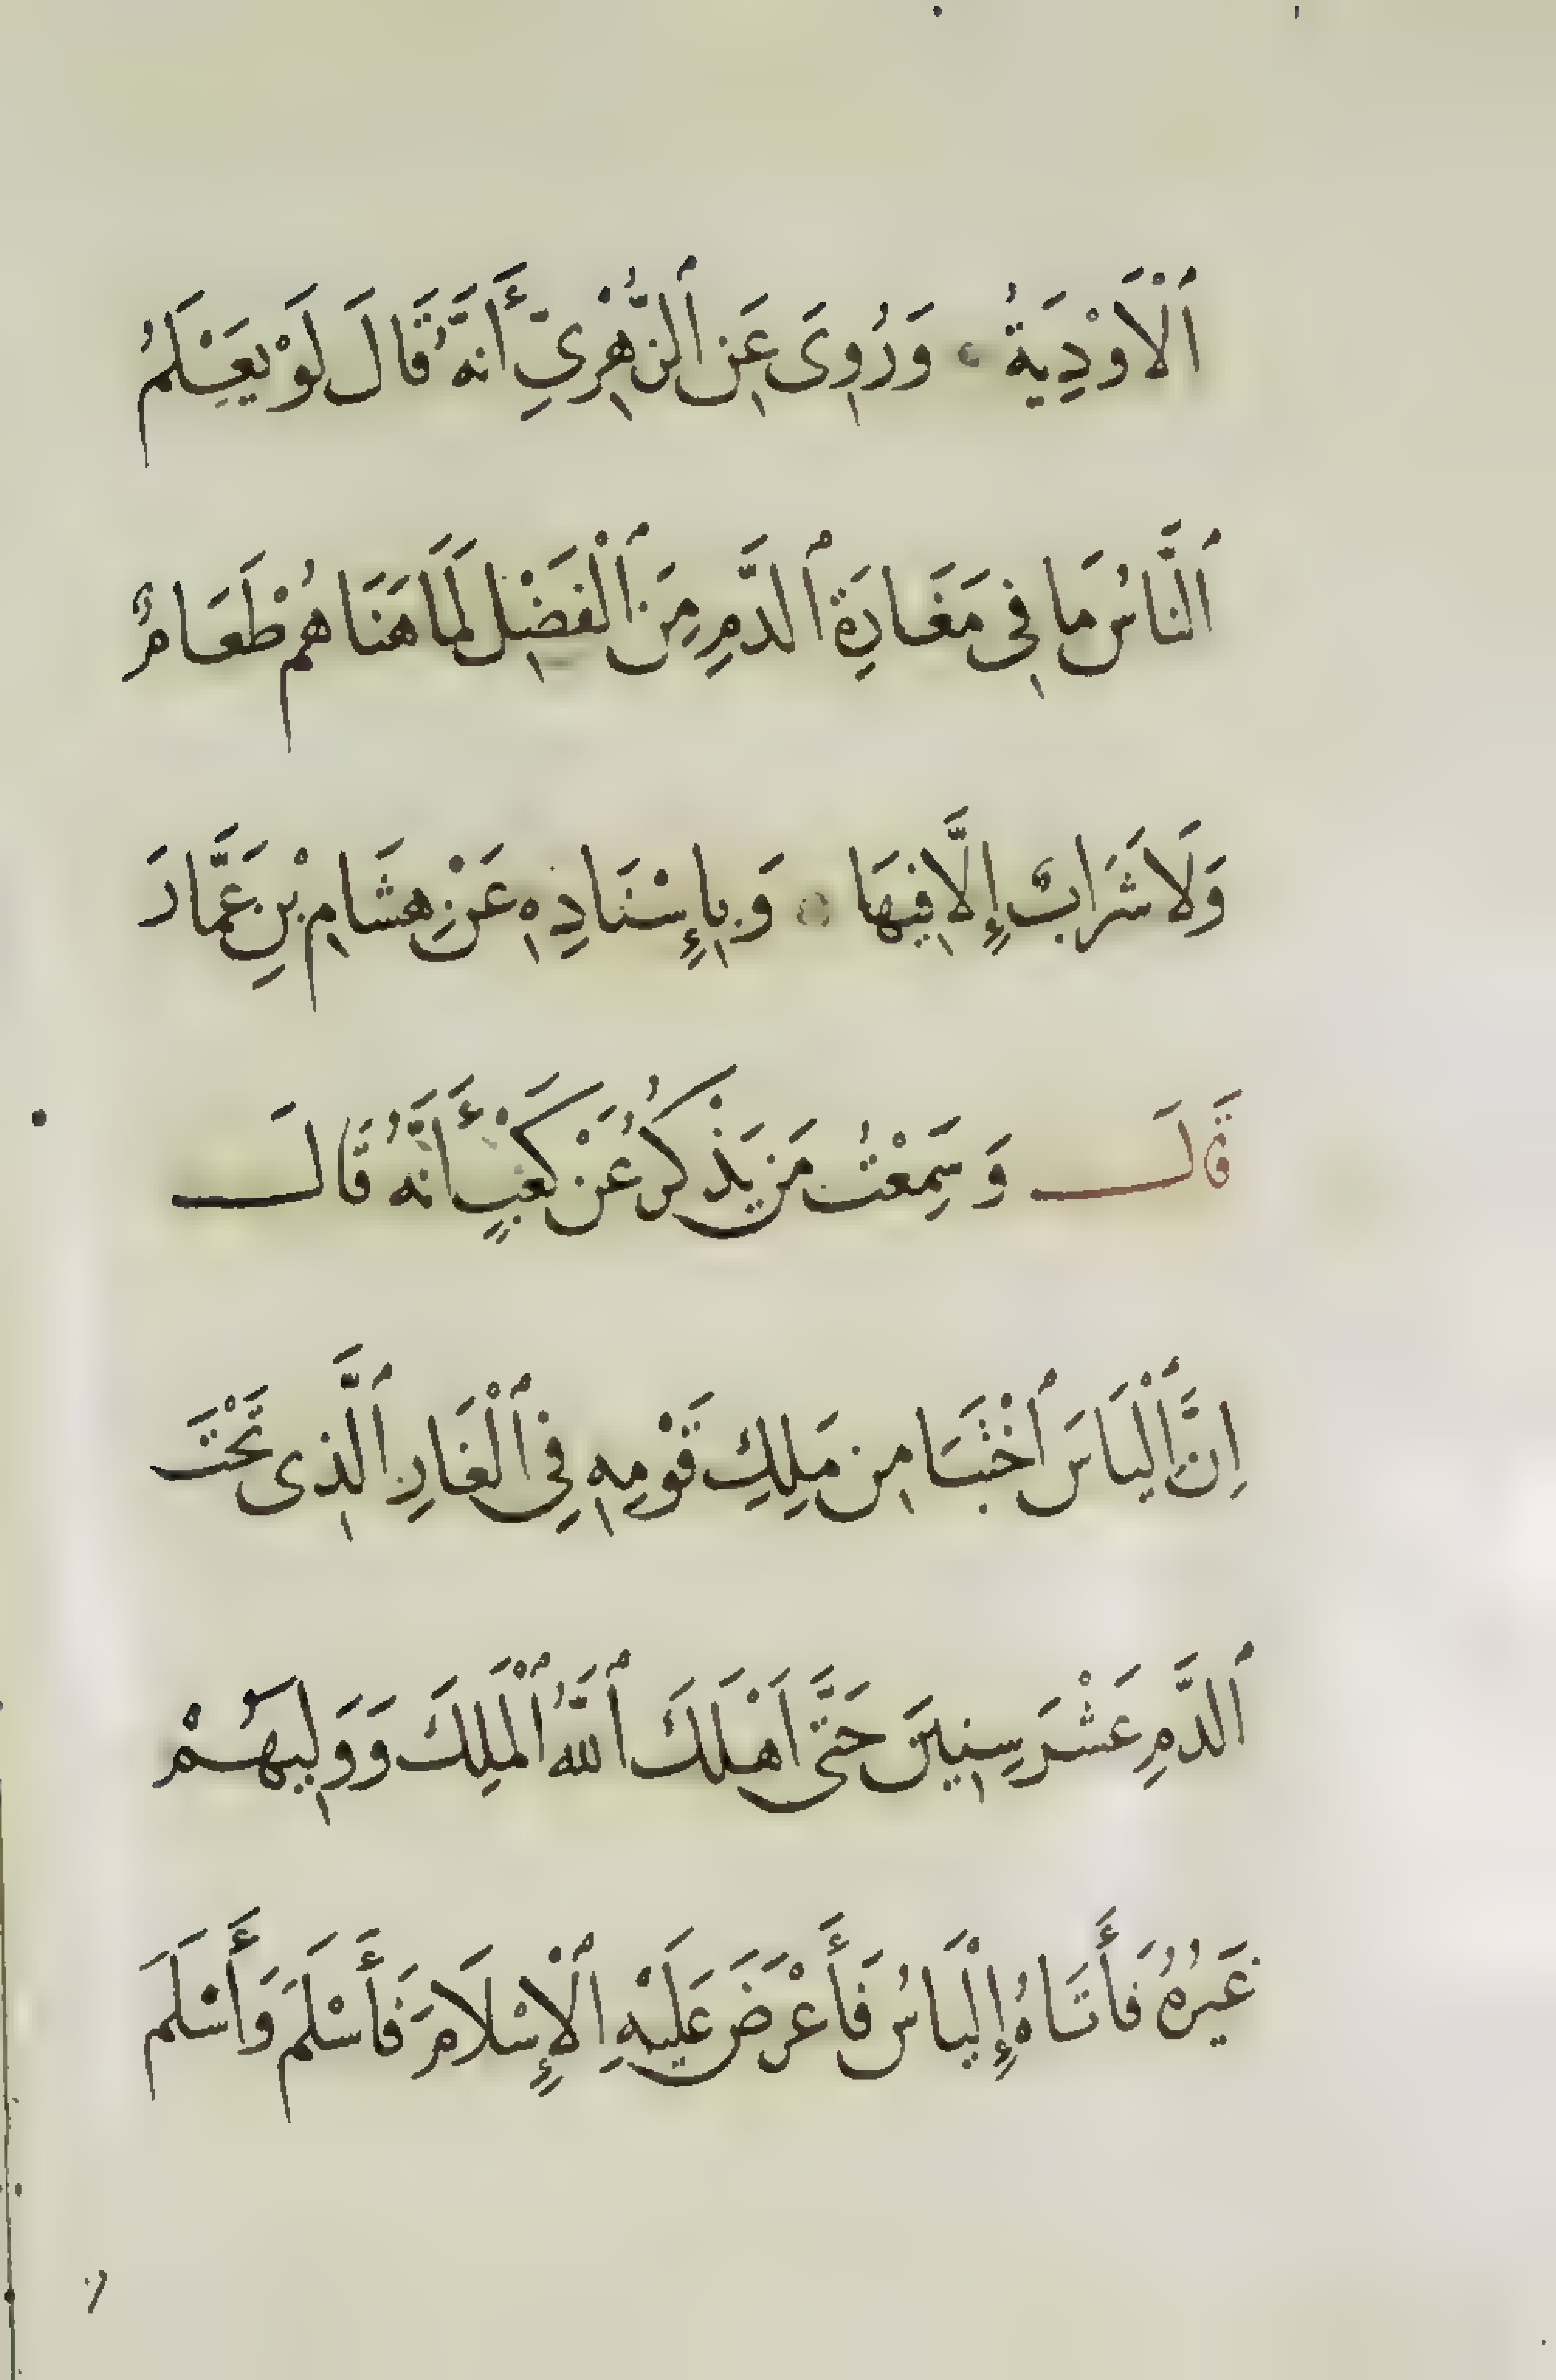 ٱلْاَوْدِيَةُ ۞ وَرُوِىَ عَنِ ٱلزُّهْرِىِّ أَنَّهُ قَالَ لَوْ يَعْلَمُ
ٱلنَّاسُ مَا فِى مَغَارَةِ ٱلدَّمِ مِنَ ٱلْفَضْلِ لَمَا هَنَاهُمْ طَعَامٌ
وَلَا شَرَابٌ إِلَّا فِيهَا ۞ وَبِإِسْنَادِهِ عَنْ هِشَامِ بْنِ عَمَّارَ
قَالَ وَسَمِعْتُ مَن يَذْكُرُ عَنْ كَعْبٍ أَنَّهُ قَالَ
اِنَّ اَلْيَاسَ ٱخْتَبَا مِن مَلِكِ قَوْمِهِ فِى ٱلْغَارِ ٱلَّذِى تَحْتَ
ٱلدَّمِ عَشْرَ سِنِينَ حَتَّى اَهْلَكَ ٱللَّهُ ٱلْمَلِكَ وَوَلِيَهُمْ
غَيْرُهُ فَأَتَاهُ إِلْيَاسُ فَأَعْرَضَ عَلَيْهِ ٱلْإِسْلَامَ فَأَسْلَمَ وَأَسْلَمَ